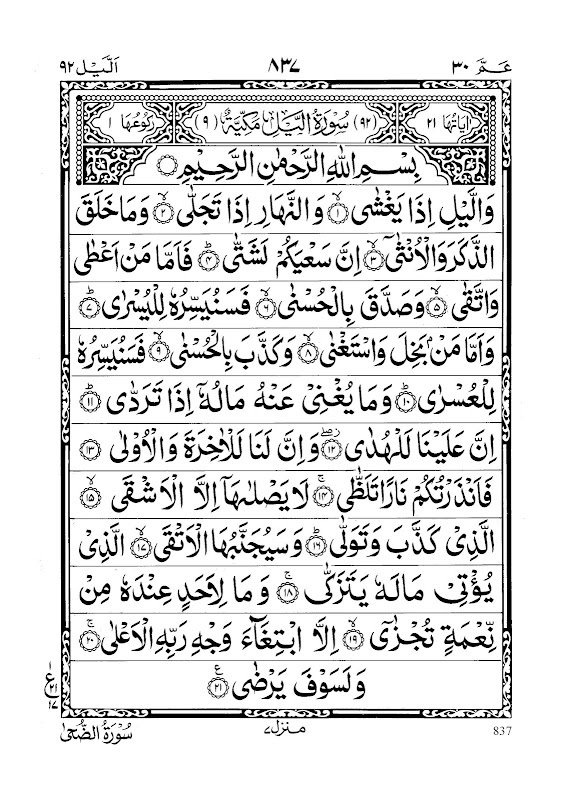 عم ٣٠ ٨٣٧ الّيل ٩٢
اٰيَاتُهَا ٢١ (٩٢) سُوْرَةُ الَّيْلِ مَكِّيَّةٌ (٩) رُكُوْعُهَا ١
بِسْمِ اللّٰهِ الرَّحْمٰنِ الرَّحِيْمِ
وَالَّيْلِ اِذَا يَغْشٰى ۙ﴿١﴾ وَالنَّهَارِ اِذَا تَجَلّٰى ۙ﴿٢﴾ وَمَا خَلَقَ
الذَّكَرَ وَالْاُنْثٰٓى ۙ﴿٣﴾ اِنَّ سَعْيَكُمْ لَشَتّٰى ؕ﴿٤﴾ فَاَمَّا مَنْ اَعْطٰى
وَاتَّقٰى ۙ﴿٥﴾ وَصَدَّقَ بِالْحُسْنٰى ۙ﴿٦﴾ فَسَنُيَسِّرُهٗ لِلْيُسْرٰى ؕ﴿٧﴾
وَاَمَّا مَنْۢ بَخِلَ وَاسْتَغْنٰى ۙ﴿٨﴾ وَكَذَّبَ بِالْحُسْنٰى ۙ﴿٩﴾ فَسَنُيَسِّرُهٗ
لِلْعُسْرٰى ؕ﴿١٠﴾ وَمَا يُغْنِىْ عَنْهُ مَالُهٗۤ اِذَا تَرَدّٰى ؕ﴿١١﴾
اِنَّ عَلَيْنَا لَلْهُدٰى ۖ﴿١٢﴾ وَاِنَّ لَنَا لَلْاٰخِرَةَ وَالْاُوْلٰى ﴿١٣﴾
فَاَنْذَرْتُكُمْ نَارًا تَلَظّٰى ۚ﴿١٤﴾ لَا يَصْلٰىهَاۤ اِلَّا الْاَشْقَى ۙ﴿١٥﴾
الَّذِىْ كَذَّبَ وَتَوَلّٰى ؕ﴿١٦﴾ وَسَيُجَنَّبُهَا الْاَتْقَى ۙ﴿١٧﴾ الَّذِىْ
يُؤْتِىْ مَالَهٗ يَتَزَكّٰى ۚ﴿١٨﴾ وَمَا لِاَحَدٍ عِنْدَهٗ مِنْ
نِّعْمَةٍ تُجْزٰٓى ۙ﴿١٩﴾ اِلَّا ابْتِغَآءَ وَجْهِ رَبِّهِ الْاَعْلٰى ۚ﴿٢٠﴾
وَلَسَوْفَ يَرْضٰى ﴿٢١﴾
ع
٢١
١٧
837 منزل ٧ سُوْرَةُ الضُّحٰى